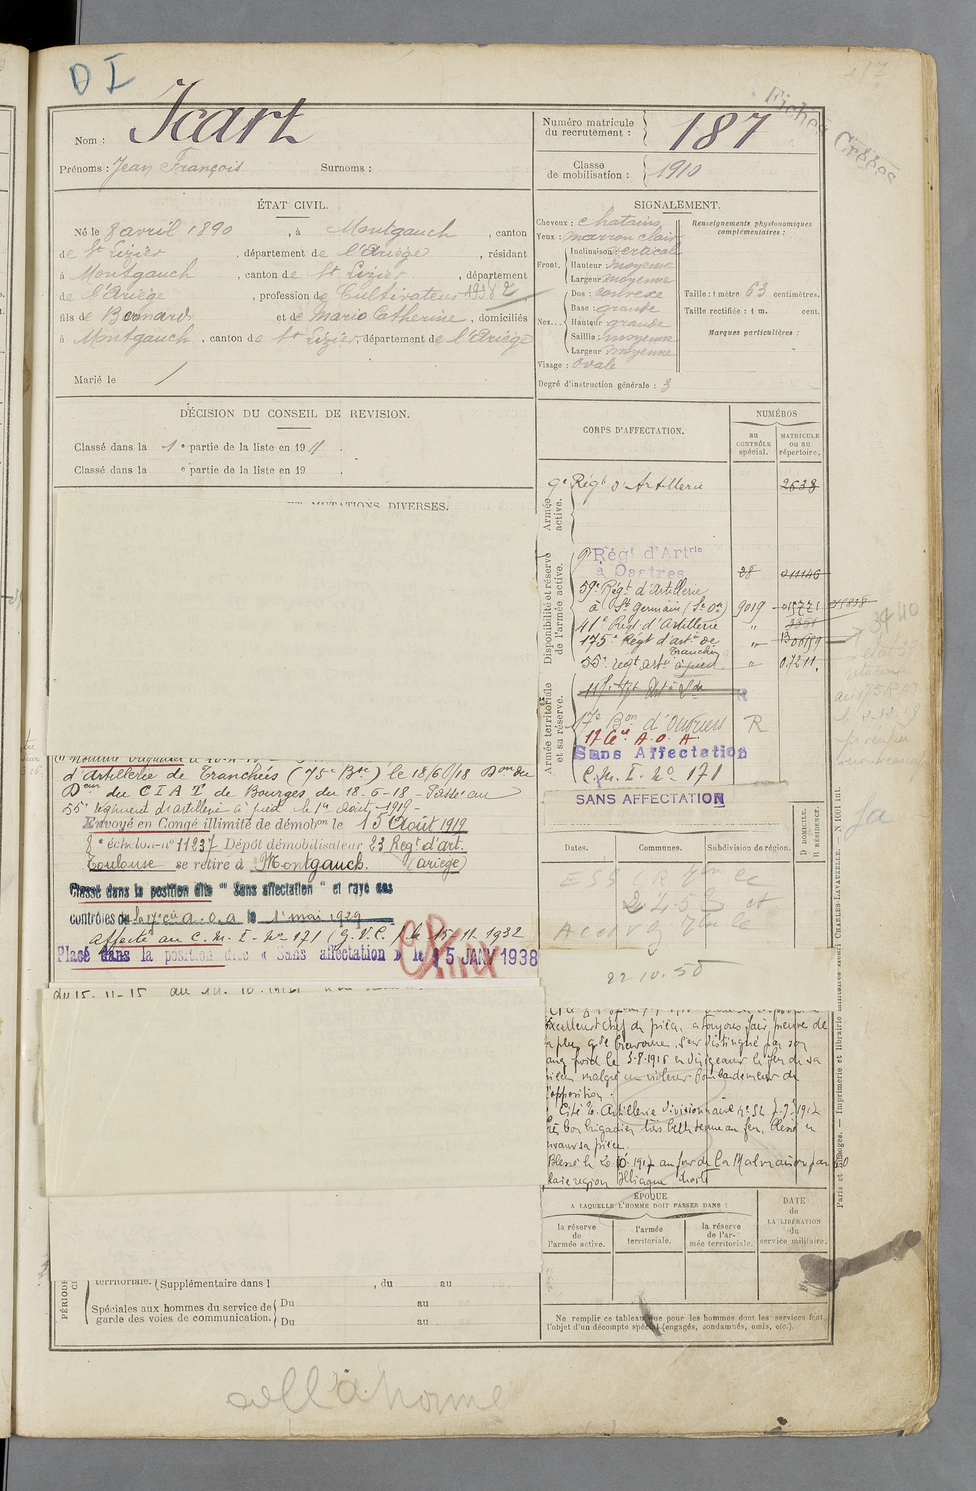 D I
Nom : Icart
Prénoms : Jean François Surnoms :
Numéro matricule du recrutement : 187
Classe de mobilisation : 1910
Fiches Créées
ÉTAT CIVIL.
Né le 8 avril 1890, à Montgauch, canton
de St Lizier, département de l'Ariège, résidant
à Montgauch, canton de St Lizier, département
de l'Ariège, profession de Cultivateur
fils de Bernard et de Marie Catherine, domiciliés
à Montgauch, canton de St Lizier, département de l'Ariège
Marié le /
SIGNALEMENT.
Cheveux : chatains
Yeux : marron clair
Front. Inclinaison : verticale
Hauteur : moyenne
Largeur : moyenne
Nez. Dos : convexe
Base : grande
Hauteur : grande
Saillie : moyenne
Largeur : moyenne
Visage : ovale
Renseignements physionomiques complémentaires :
Taille : 1 mètre 63 centimètres.
Taille rectifiée : 1 m. cent.
Marques particulières :
Degré d'instruction générale : 3
DÉCISION DU CONSEIL DE REVISION.
Classé dans la 1e partie de la liste en 1911.
Classé dans la e partie de la liste en 19 .
ET MUTATIONS DIVERSES.
CORPS D'AFFECTATION.
NUMÉROS
au CONTRÔLE spécial.
MATRICULE ou au répertoire.
Armée active.
9e Régt d'Artillerie 2638
Disponibilité et réserve de l'armée active.
9e Régt d'Artrie
à Castres 28
59e Régt d'Artillerie
à St Germain (Se Oe) 9019
41e Régt d'Artillerie "
175e Régt d'artie de Tranchée "
55e régt artie à pied "
Armée territoriale et sa réserve.
17e Bon d'Ouvriers R
17e Cie A.O.A.
Sans Affectation
C.M.I. No 171
SANS AFFECTATION
d'Artillerie de Tranchées (75e Bie) le 18/6/18
du C I A T de Bourges du 18-6-18 - Passé au
55e régiment d'artillerie à pied le 1er Août 1919 -
Envoyé en Congé illimité de démobon le 15 Août 1919
8e échelon no 11237 Dépôt démobilisateur 23 Régt d'art.
Toulouse se retire à Montgauch. (Ariège)
Classé dans la position dite "Sans affectation" et rayé des
contrôles de la 17e cie a.o.a le 1er mai 1929
affecté au C.M.I. No 171 (G.V.C.) le 15-11-1932
Placé dans la position dite « Sans affectation » le 15 JANV 1938
Dates.
Communes.
Subdivision de région.
D DOMICILE.
R RÉSIDENCE.
22-10-50
du 15-11-15 au
Excellent chef de pièce, a toujours fait preuve de
la plus grde bravoure, s'est distingué par son
sang froid le 5-8-1916 en dirigeant le feu de sa
pièce malgré un violent bombardement de
l'opposition.
Cité
Très bon brigadier très belle tenue au feu, blessé en
servant sa pièce.
Blessé le 20-10-1917 au fort de la Malmaison par
région iliaque droite
ÉPOQUE
A LAQUELLE L'HOMME DOIT PASSER DANS :
la réserve de l'armée active.
l'armée territoriale.
la réserve de l'armée territoriale.
DATE de LA LIBÉRATION du service militaire.
territoriale. (Supplémentaire dans l , du au
Spéciales aux hommes du service de garde des voies de communication.
Du au
Du au
Ne remplir ce tableau que pour les hommes dont les services font
l'objet d'un décompte spécial (engagés, condamnés, omis, etc.).
Paris et Limoges. — Imprimerie et librairie militaires Henri CHARLES-LAVAUZELLE. — N 1001 int.